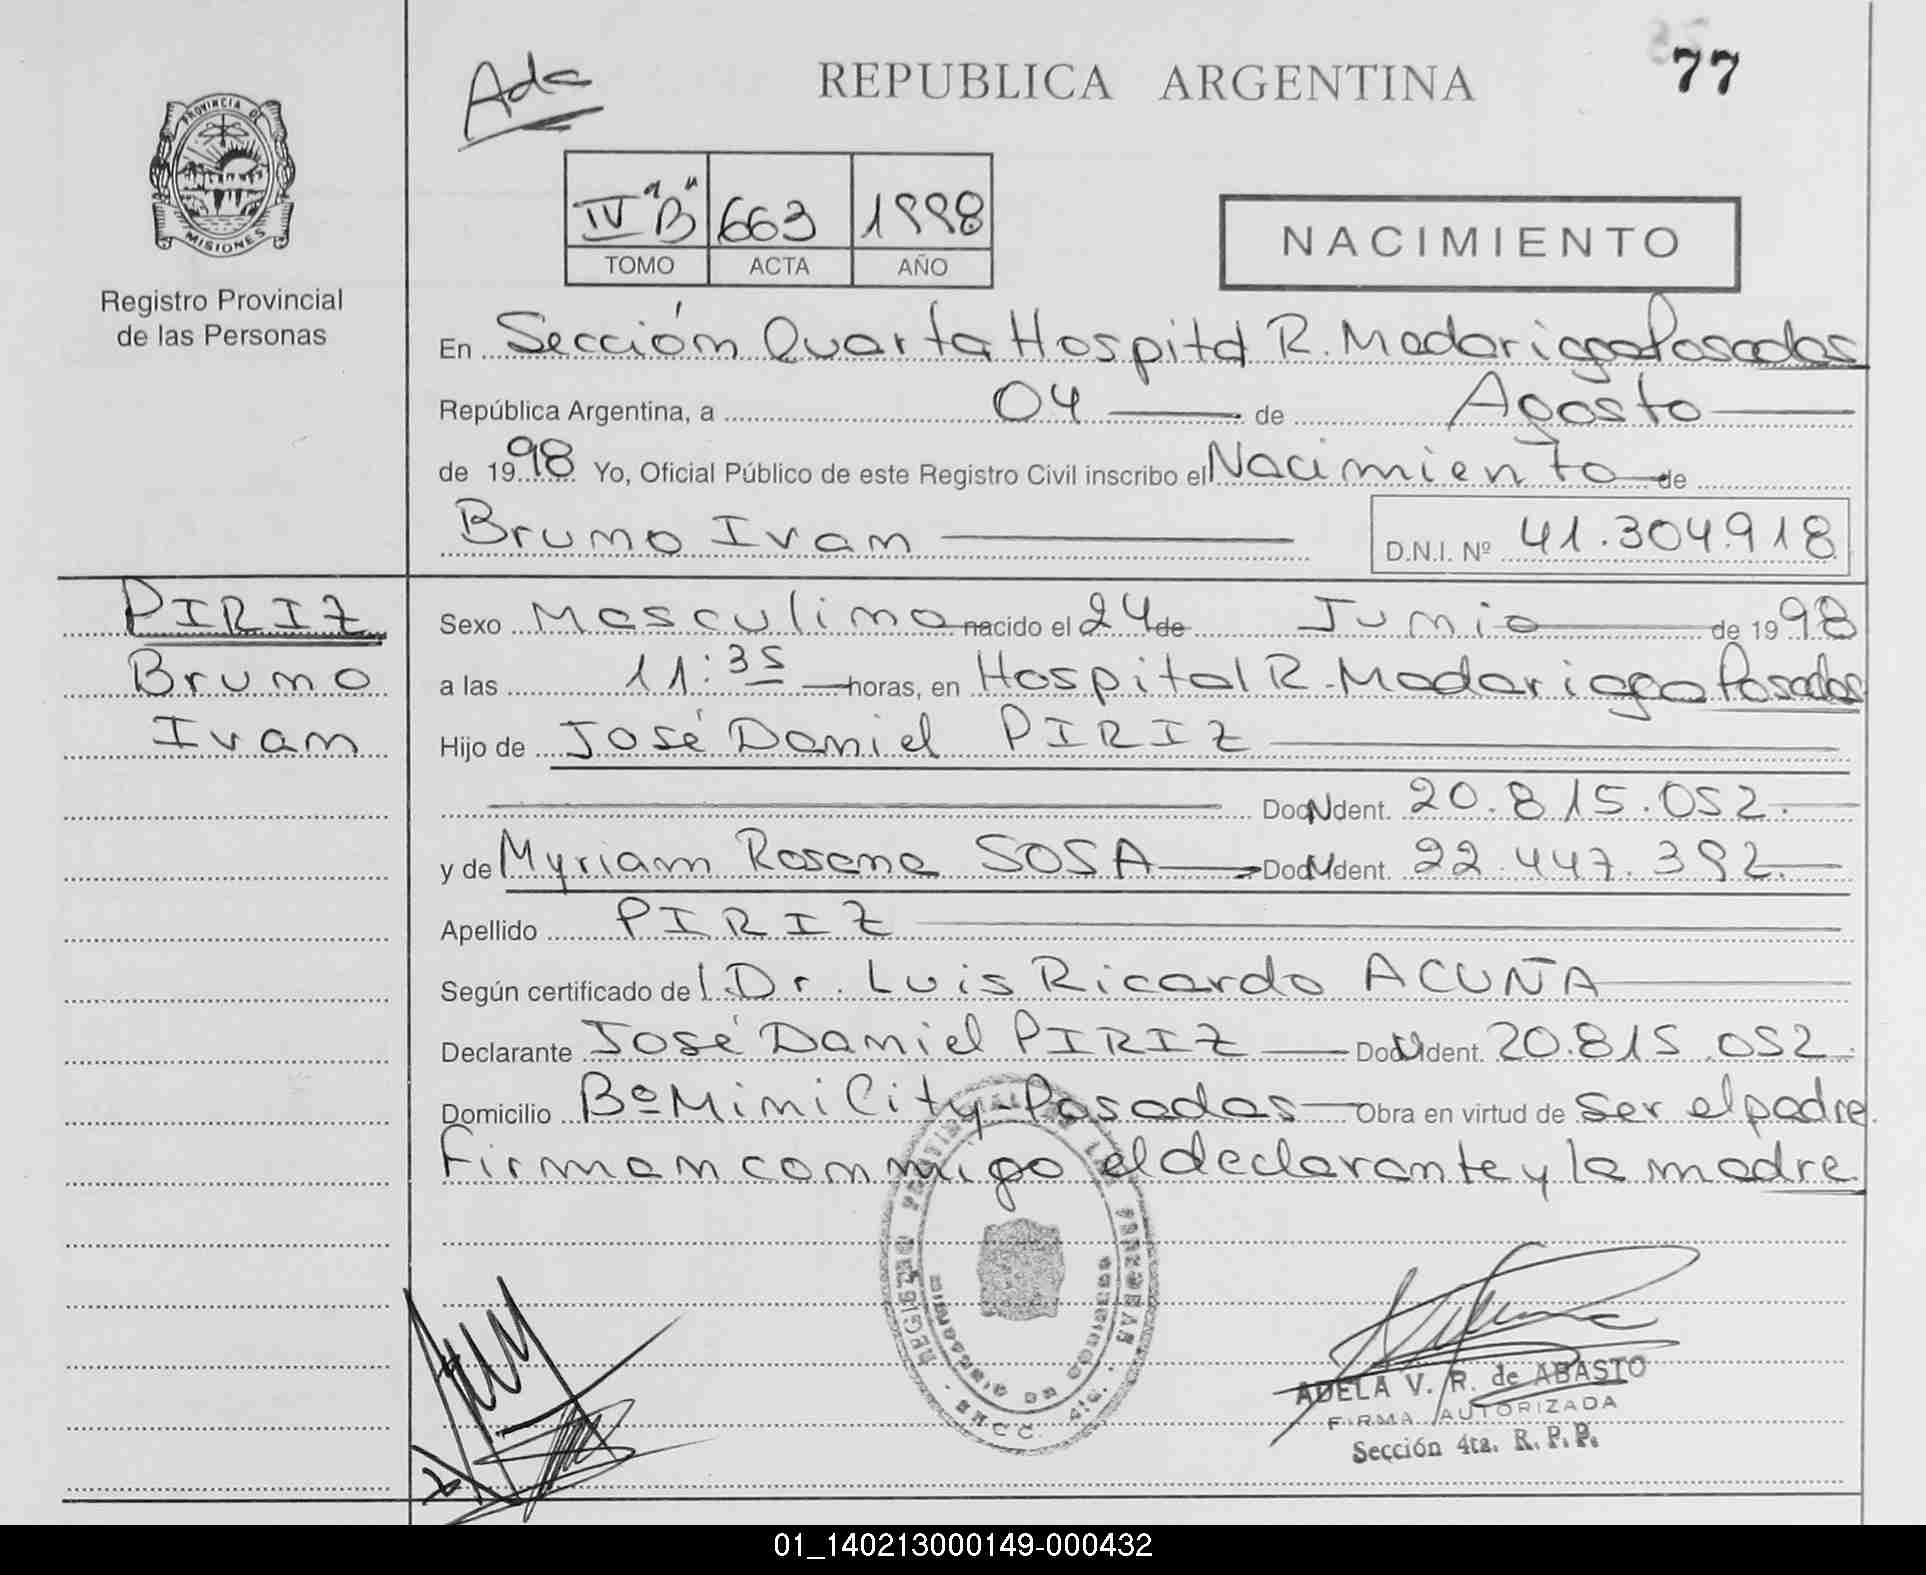 Ada
REPUBLICA ARGENTINA
77
PROVINCIA DE
MISIONES
Registro Provincial
de las Personas
IV "B" 663 1998
TOMO ACTA AÑO
NACIMIENTO
En Sección Quarta Hospital R. Madariaga Posadas
República Argentina, a 04 de Agosto
de 1998 Yo, Oficial Público de este Registro Civil inscribo el Nacimiento de
Bruno Ivan
D.N.I. Nº 41.304.918
PIRIZ
Bruno
Ivan
Sexo Masculino nacido el 24 de Junio de 1998
a las 11:35 horas, en Hospital R. Madariaga Posadas
Hijo de José Daniel PIRIZ
Doc. Ident. 20.815.052.
y de Myriam Rosana SOSA Doc. Ident. 22.447.392.
Apellido PIRIZ
Según certificado del Dr. Luis Ricardo ACUÑA
Declarante José Daniel PIRIZ Doc. Ident. 20.815.052.
Domicilio Bº Mini City-Posadas Obra en virtud de ser el padre.
Firman conmigo el declarante y la madre
REGISTRO PROVINCIAL DE LAS PERSONAS
ADELA V. R. de ABASTO
FIRMA AUTORIZADA
Sección 4ta. R. P. P.
01_140213000149-000432